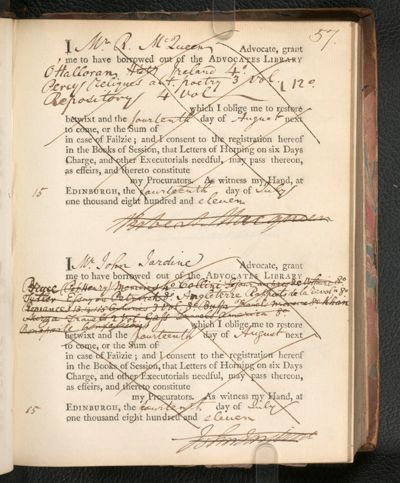 57.
I Mr R. McQueen Advocate, grant
me to have borrowed out of the ADVOCATES LIBRARY
O'Halloran Ireland 4o.
Percy Reliques ant. poetry 3 Vol. 12o
Repository 4 Vol
which I oblige me to restore
betwixt and the fourteenth day of August next
to come, or the Sum of
in case of Failzie; and I consent to the registration hereof
in the Books of Session, that Letters of Horning on six Days
Charge, and other Executorials needful, may pass thereon,
as effeirs, and thereto constitute
my Procurators. As witness my Hand, at
15 EDINBURGH, the fourteenth day of July
one thousand eight hundred and eleven
I Mr John Jardine Advocate, grant
me to have borrowed out of the ADVOCATES LIBRARY
8o
Tytler Essay on
Romance
which I oblige me to restore
betwixt and the fourteenth day of August next
to come, or the Sum of
in case of Failzie; and I consent to the registration hereof
in the Books of Session, that Letters of Horning on six Days
Charge, and other Executorials needful, may pass thereon,
as effeirs, and thereto constitute
my Procurators. As witness my Hand, at
15 EDINBURGH, the fourteenth day of July
one thousand eight hundred and eleven